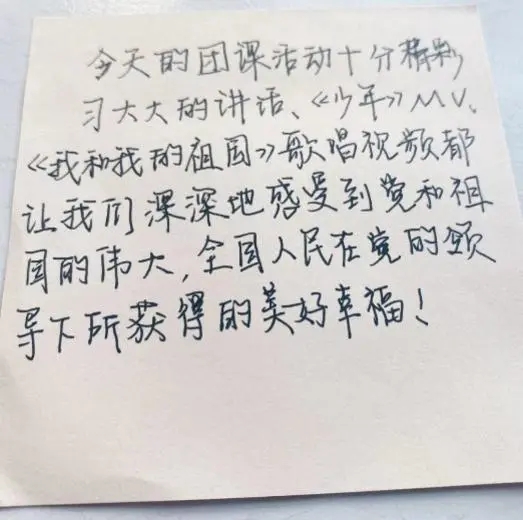 今天的团课活动十分精彩
习大大的讲话、《少年》MV、
《我和我的祖国》歌唱视频都
让我们深深地感受到党和祖
国的伟大,全国人民在党的领
导下所获得的美好幸福!